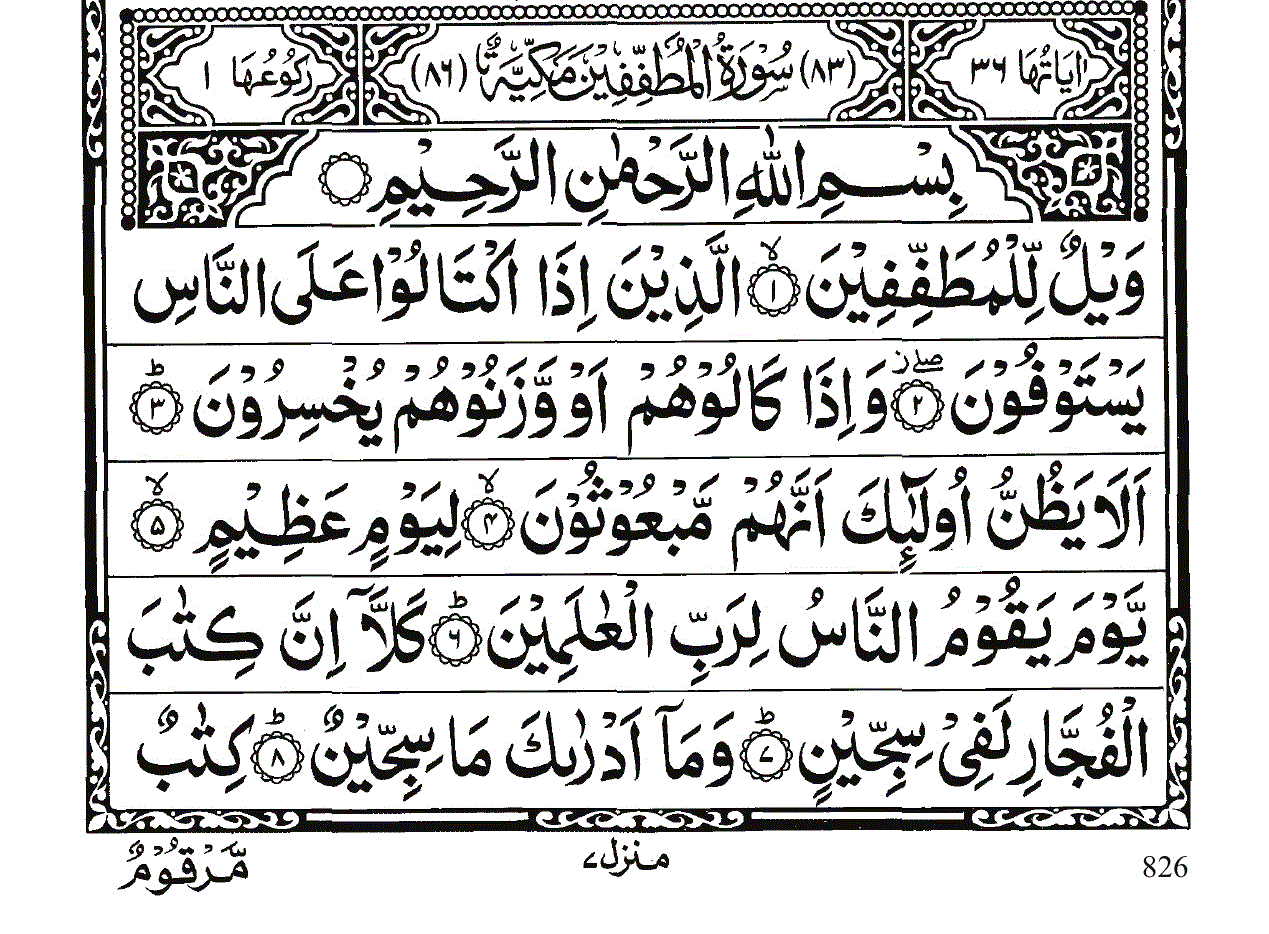 اٰيَاتُهَا ٣٦ (٨٣) سُوْرَةُ الْمُطَفِّفِيْنَ مَكِّيَّةٌ (٨٦) رُكُوْعُهَا ١
بِسْمِ اللّٰهِ الرَّحْمٰنِ الرَّحِيْمِ
وَيْلٌ لِّلْمُطَفِّفِيْنَ ۙ﴿۱﴾ الَّذِيْنَ اِذَا اكْتَالُوْا عَلَى النَّاسِ
يَسْتَوْفُوْنَ ﴿۲﴾ ۖز وَاِذَا كَالُوْهُمْ اَوْ وَّزَنُوْهُمْ يُخْسِرُوْنَ ؕ﴿۳﴾
اَلَا يَظُنُّ اُولٰٓئِكَ اَنَّهُمْ مَّبْعُوْثُوْنَ ۙ﴿۴﴾ لِيَوْمٍ عَظِيْمٍ ۙ﴿۵﴾
يَّوْمَ يَقُوْمُ النَّاسُ لِرَبِّ الْعٰلَمِيْنَ ؕ﴿۶﴾ كَلَّاۤ اِنَّ كِتٰبَ
الْفُجَّارِ لَفِيْ سِجِّيْنٍ ؕ﴿۷﴾ وَمَاۤ اَدْرٰىكَ مَا سِجِّيْنٌ ؕ﴿۸﴾ كِتٰبٌ
مَّرْقُوْمٌ منزل ۷ 826